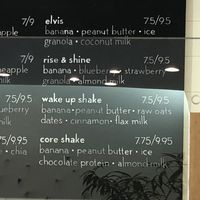 elvis 7.5/9.5
neapple 7/9 banana • peanut butter • ice
granola • coconut milk
rise & shine 7.5/9.5
apple 7/9 banana • blueberry • strawberry
granola • almond milk
7.5/9.5 wake up shake 7.5/9.5
blueberry banana • peanut butter • raw oats
milk dates • cinnamon • flax milk
7.5/9.5 core shake 7.75/9.95
banana • peanut butter • ice
• chia chocolate protein • almond milk